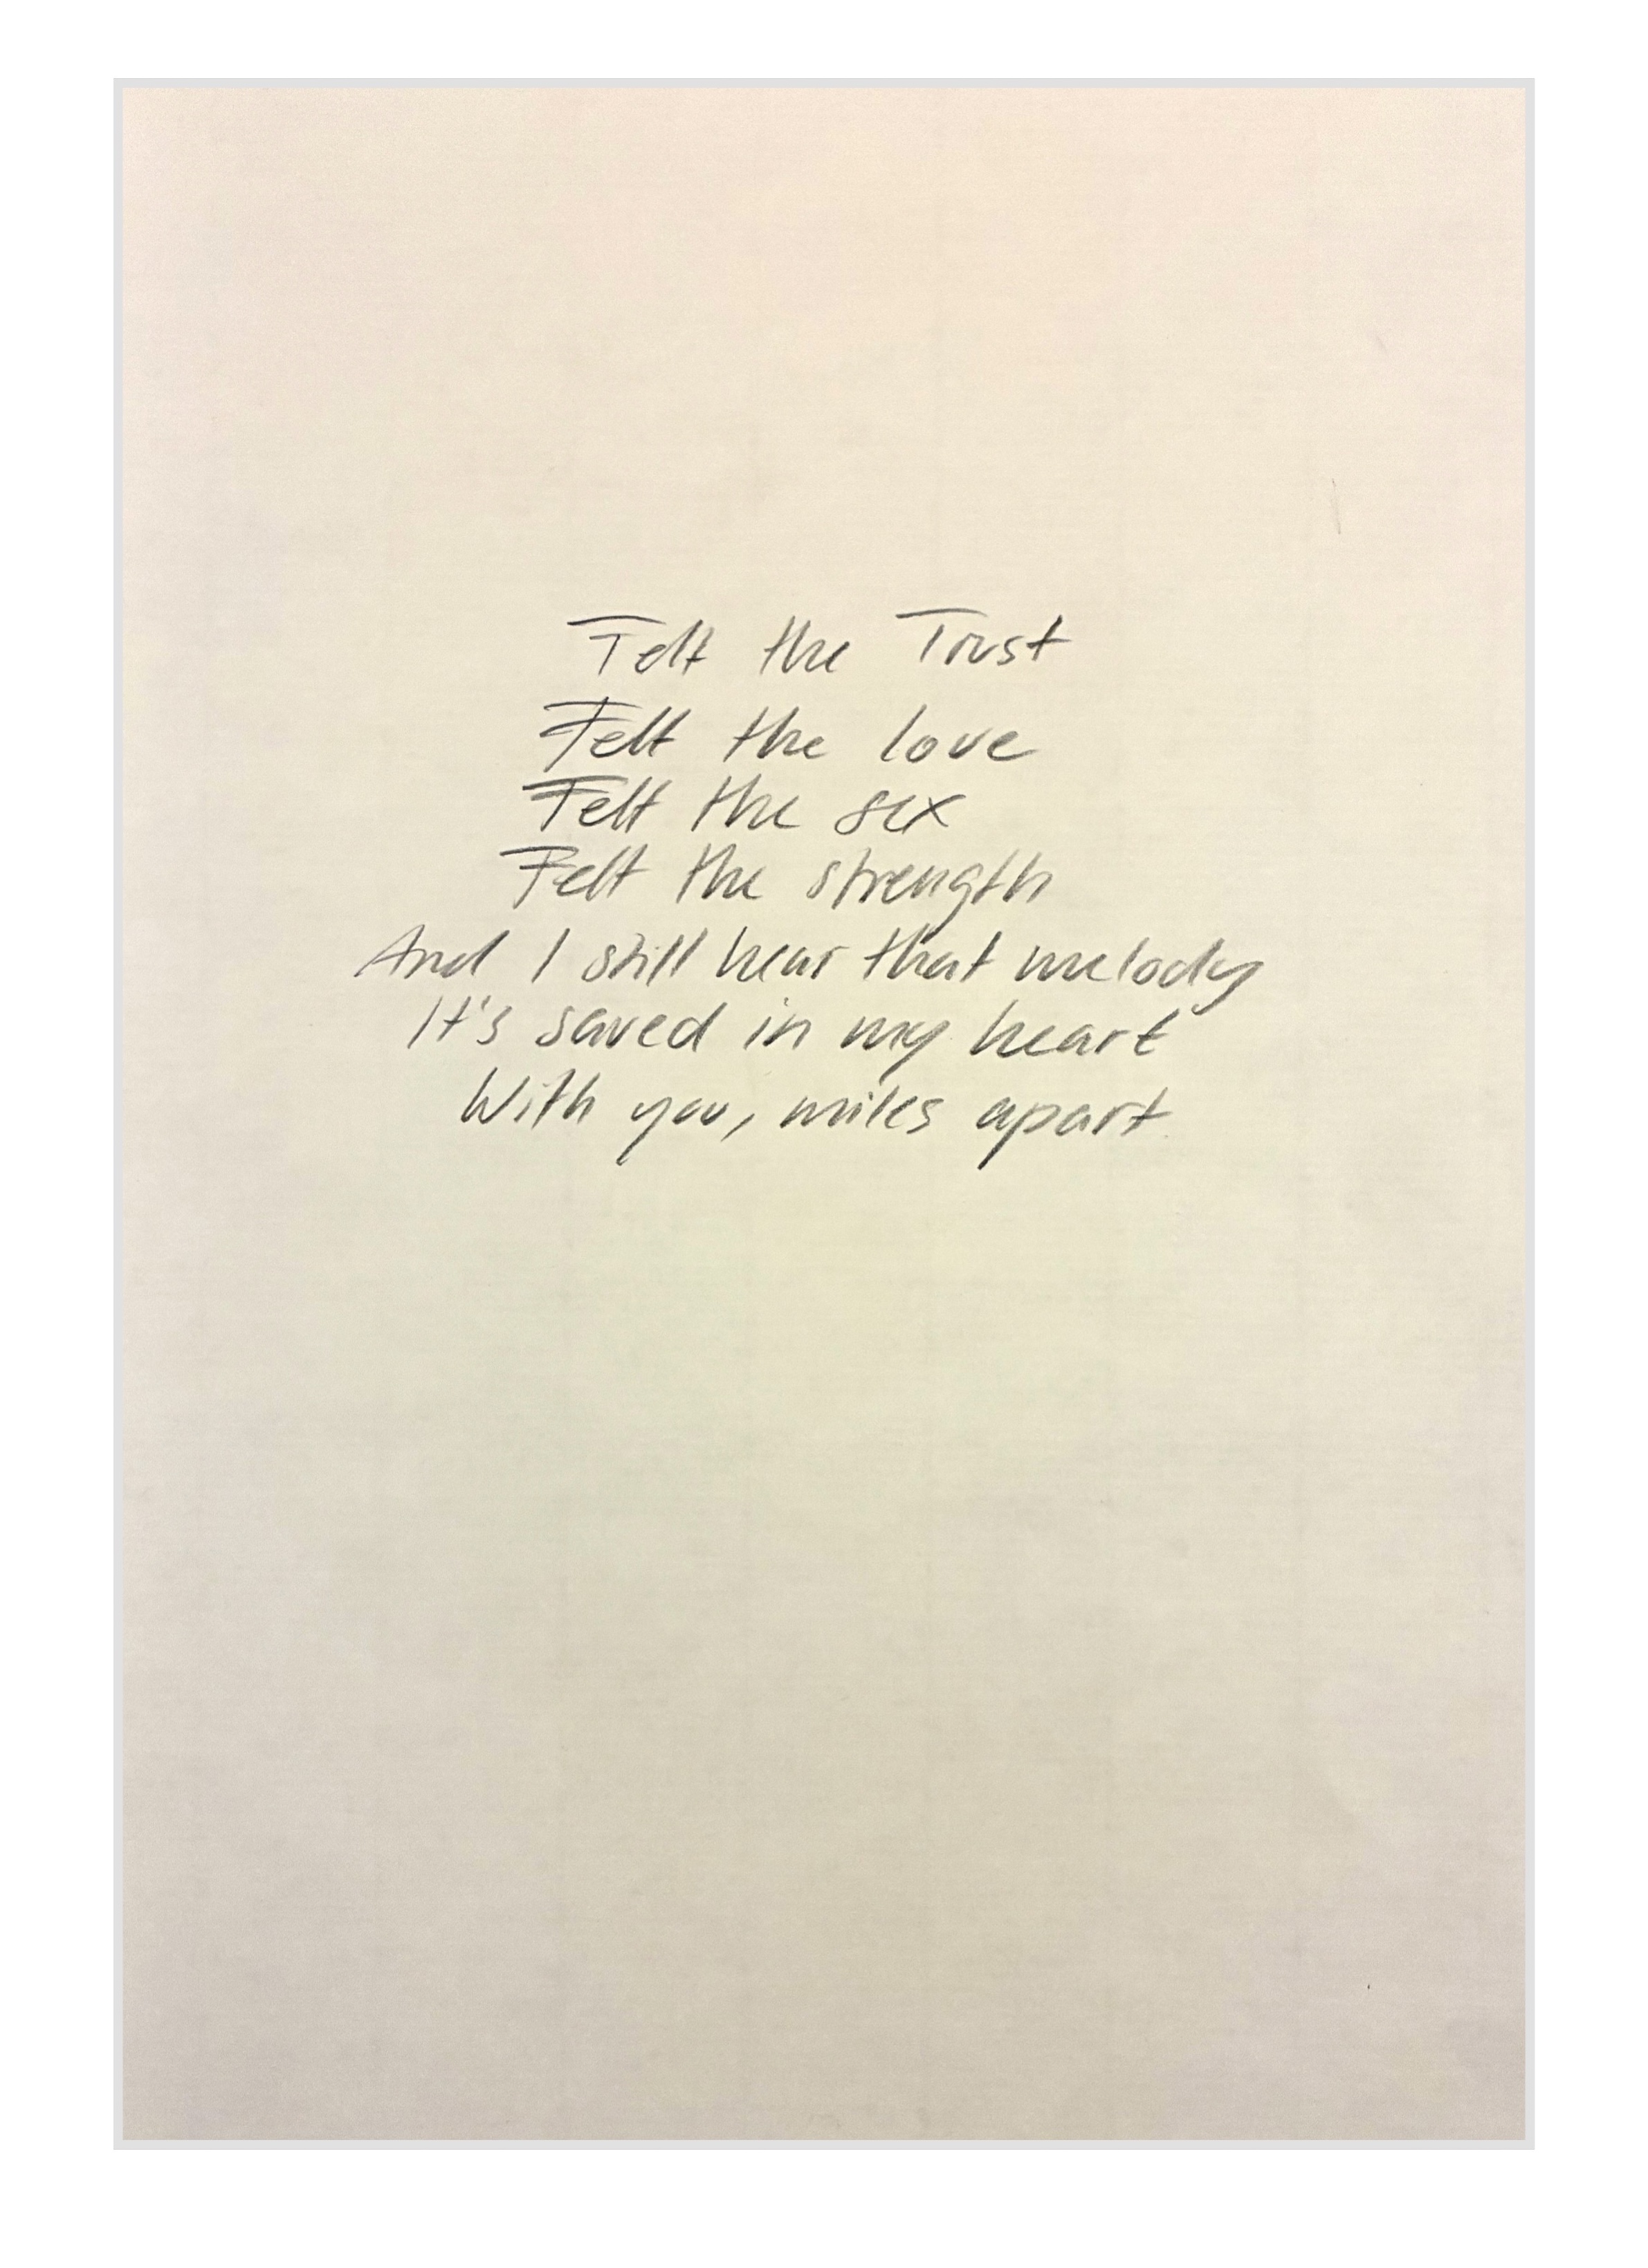 Felt the Trust
Felt the love
Felt the sex
Felt the strength
And I still hear that melody
It's saved in my heart
With you, miles apart.